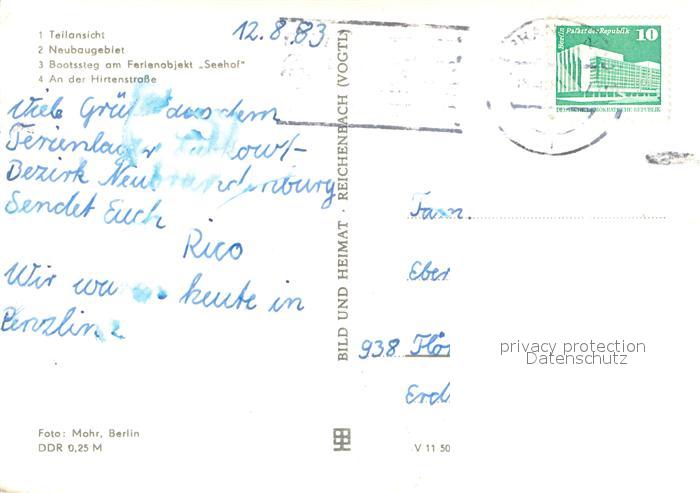 1 Teilansicht
2 Neubaugebiet
3 Bootssteg am Ferienobjekt „Seehof"
4 An der Hirtenstraße
12.8.83
Viele Grüße aus dem
Ferienlager
Bezirk Neubrandenburg
Sendet Euch
Rico
Wir waren heute in
Penzlin.
Foto: Mohr, Berlin
DDR 0,25 M
BILD UND HEIMAT · REICHENBACH (VOGTL)
Berlin Palast der Republik 10
DEUTSCHE DEMOKRATISCHE REPUBLIK
Fam.
Eber
938 Flö
Erd
V 11 50
privacy protection
Datenschutz